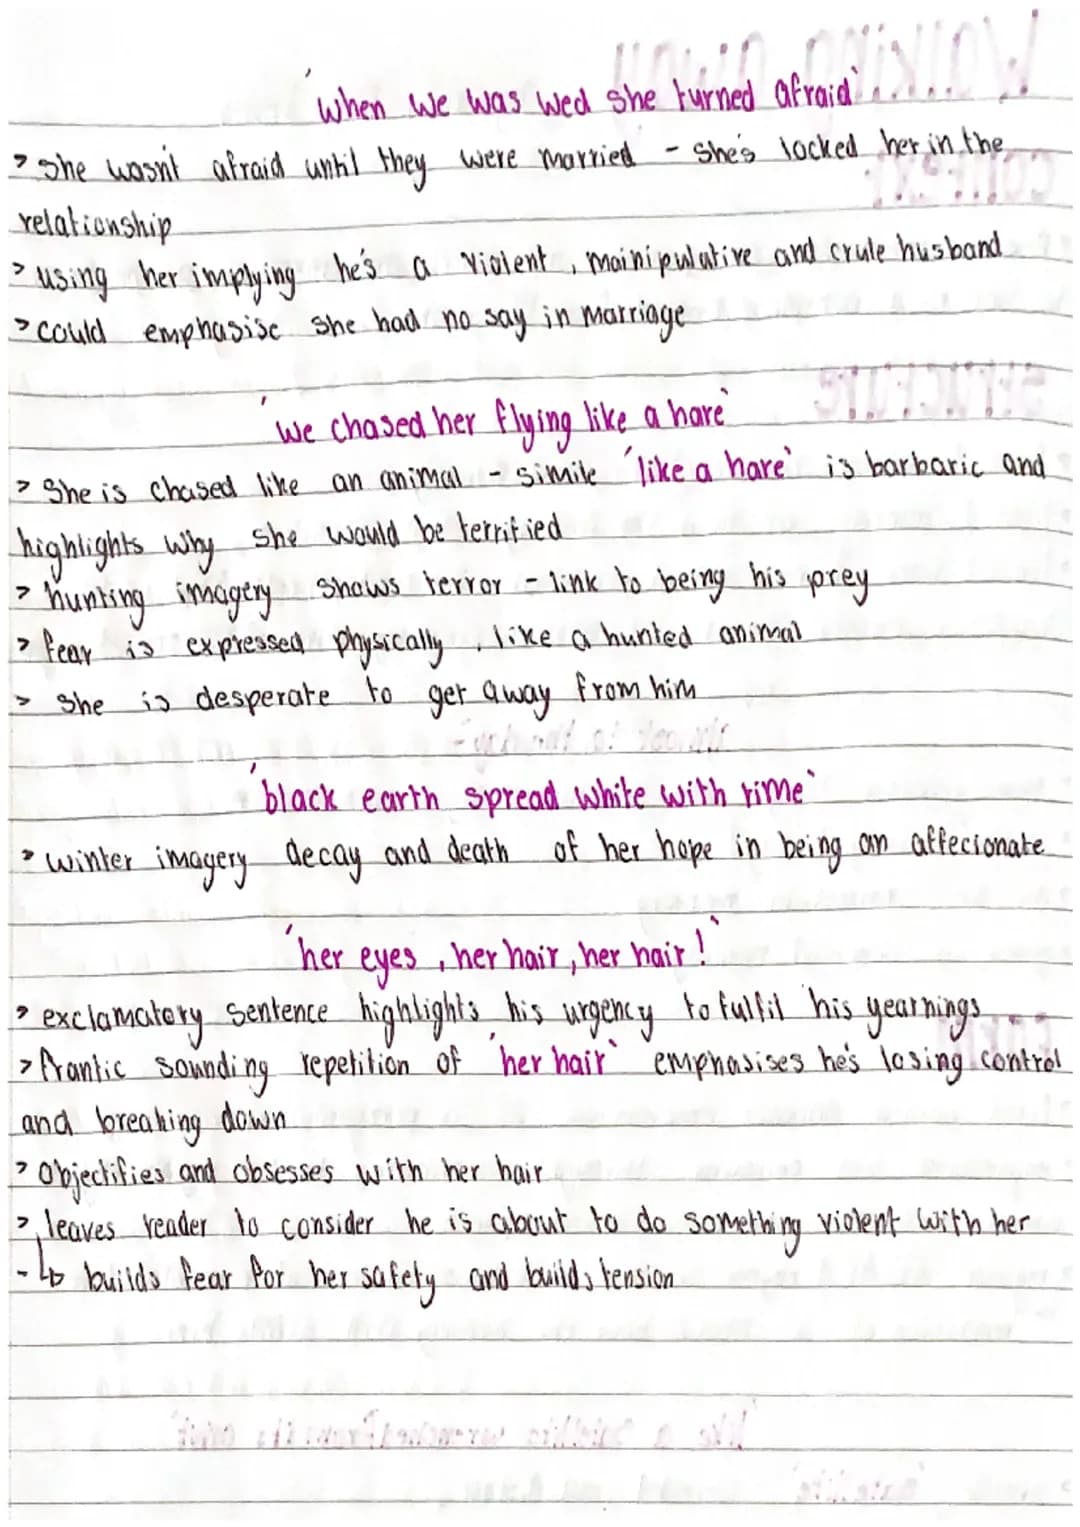 'when we was wed she turned afraid'
> She wasn't afraid until they were married - she's locked her in the
relationship
> using her implying he's a violent, mainipulative and crule husband
> could emphasise she had no say in marriage
'we chased her flying like a hare'
> She is chased like an animal - simile 'like a hare' is barbaric and
highlights why she would be terrified
> hunting imagery shows terror - link to being his prey
> fear is expressed physically, like a hunted animal
> She is desperate to get away from him
'black earth spread white with rime'
> winter imagery decay and death of her hope in being an affecionate
'her eyes, her hair, her hair!'
> exclamatory sentence highlights his urgency to fulfil his yearnings
> frantic sounding repetition of 'her hair' emphasises he's losing control
and breaking down
> Objectifies and obsesses with her hair
> leaves reader to consider he is about to do something violent with her
- ↳ builds fear for her safety and builds tension